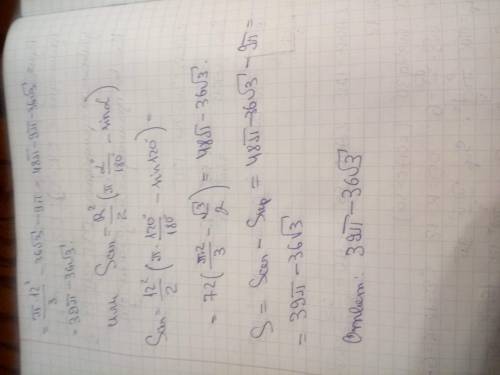 = π·12²/3 - 36√3 - 9π = 48π - 9π - 36√3 =
= 39π - 36√3.
или Sсег = R²/2 (π α°/180° - sinα)
Sсег = 12²/2 (π · 120°/180° - sin120°) =
= 72 (π·2/3 - √3/2) = 48π - 36√3.
S = Sсег - Sкр = 48π - 36√3 - 9π =
= 39π - 36√3
Ответ: 39π - 36√3